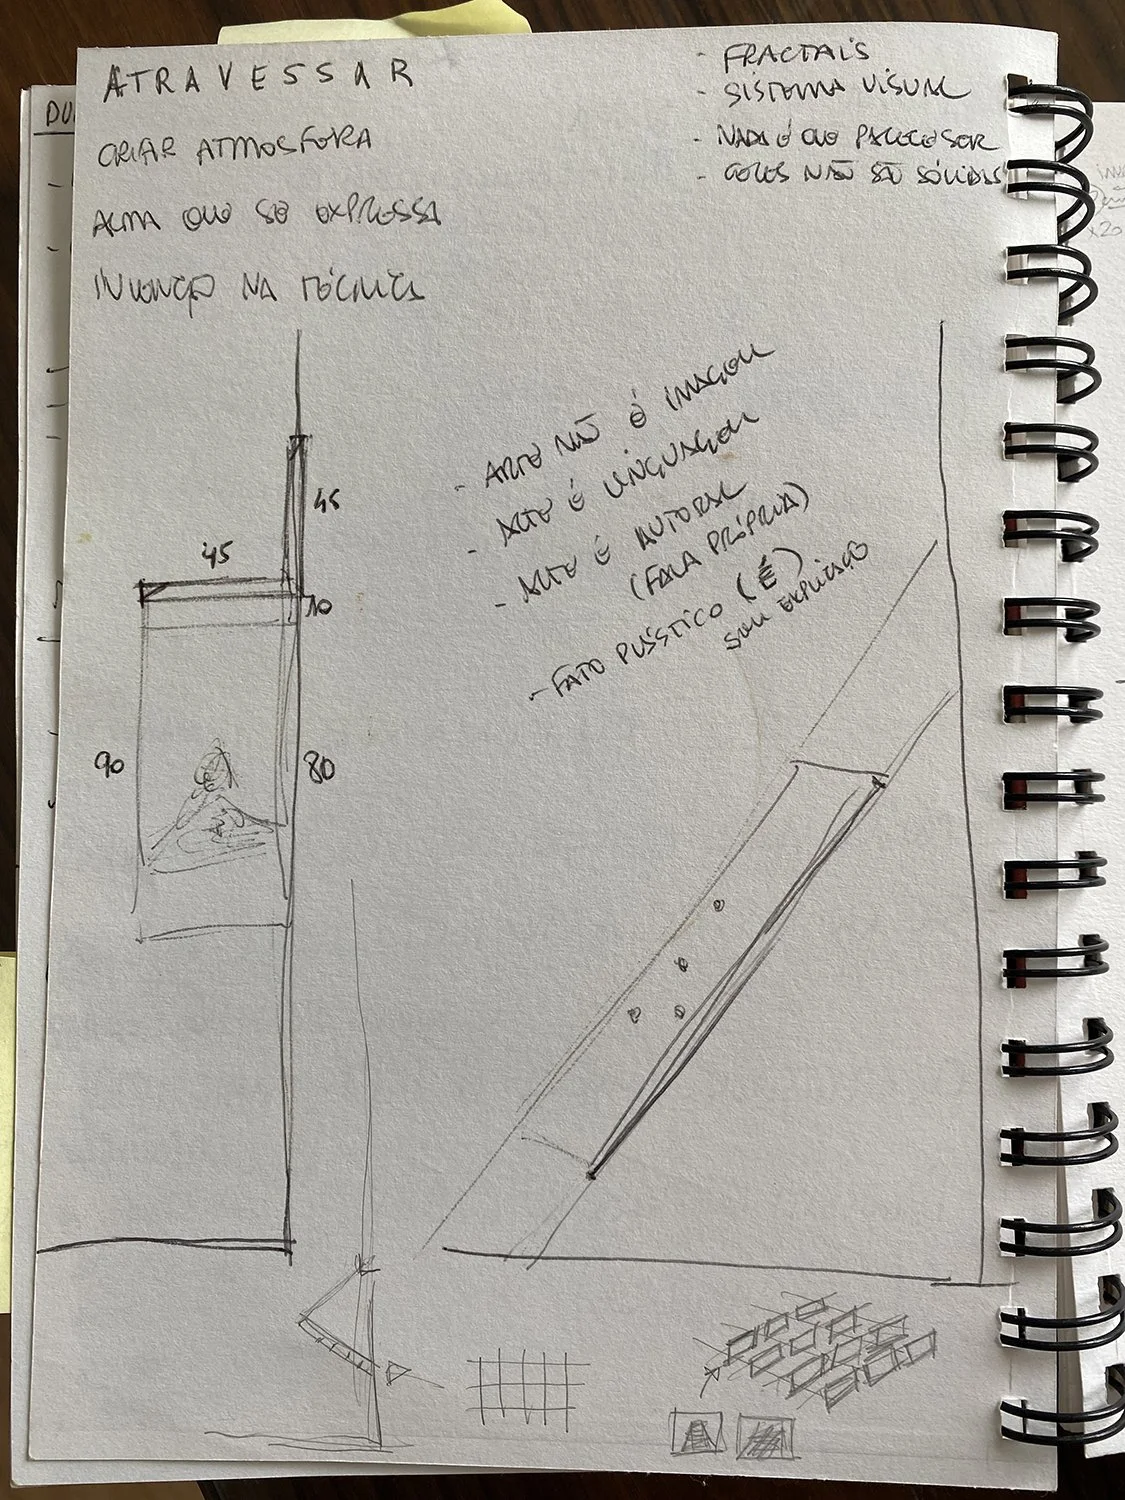 ATRAVESSAR
CRIAR ATMOSFERA
ALMA QUE SE EXPRESSA
INVENÇÃO NA TÉCNICA
- FRACTAIS
- SISTEMA VISUAL
- NADA É QUE PARECE SER
- CORES NÃO SÃO SÓLIDAS
- ARTE NÃO É IMAGEM
- ARTE É LINGUAGEM
- ARTE É AUTORAL
(FALA PRÓPRIA)
- FATO PLÁSTICO (É)
SEM EXPLICAÇÃO
45
45
10
90
80
DU